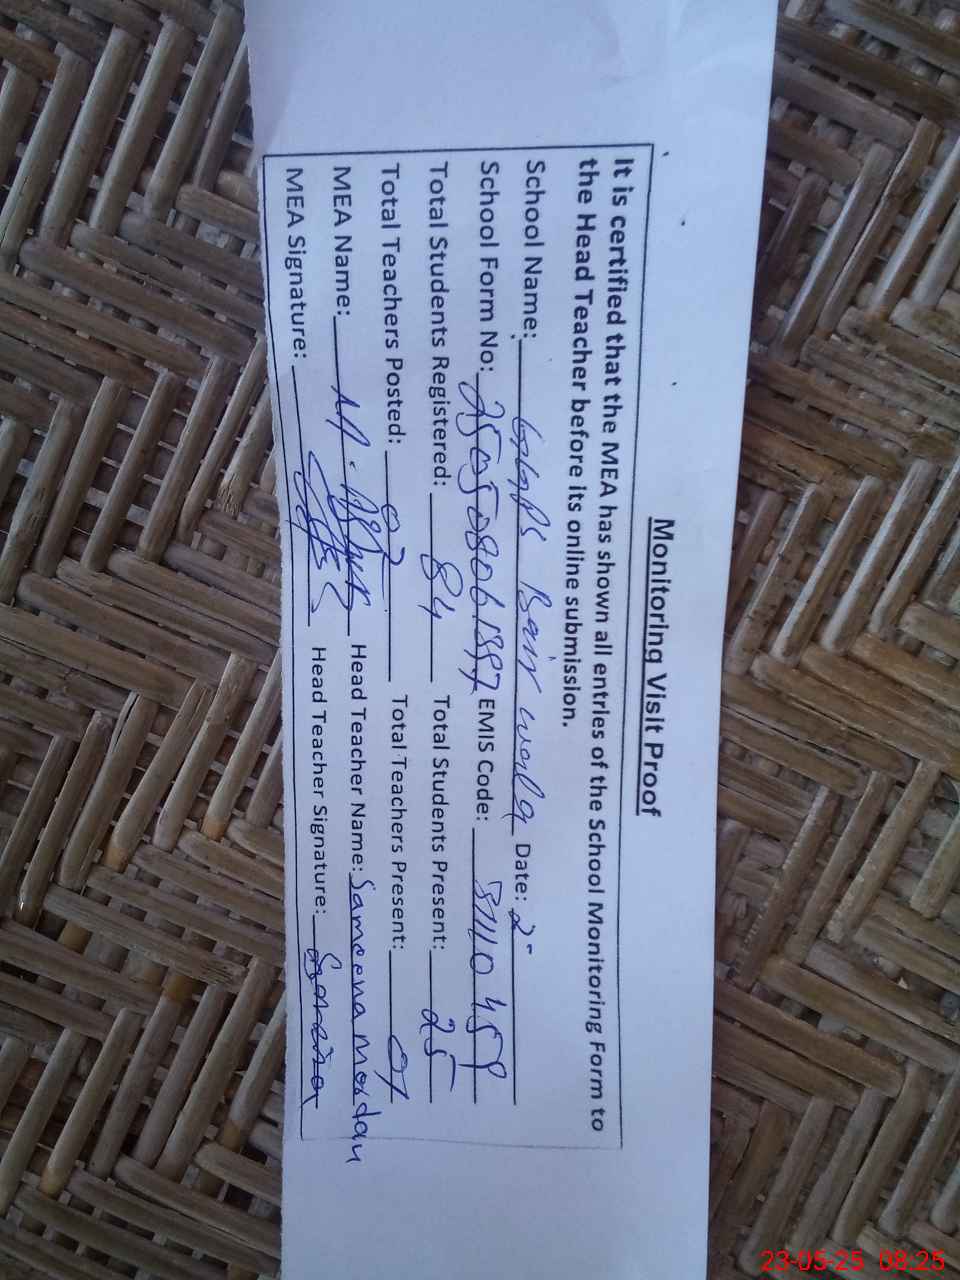 Monitoring Visit Proof
It is certified that the MEA has shown all entries of the School Monitoring Form to
the Head Teacher before its online submission.
School Name: GGPS Bair wala Date: 2-
School Form No: 250508061397 EMIS Code: 87110459
Total Students Registered: 84 Total Students Present: 25
Total Teachers Posted: 02 Total Teachers Present: 01
MEA Name: M. Head Teacher Name: Sameena Mordan
MEA Signature: Head Teacher Signature:
23-05-25 08:25